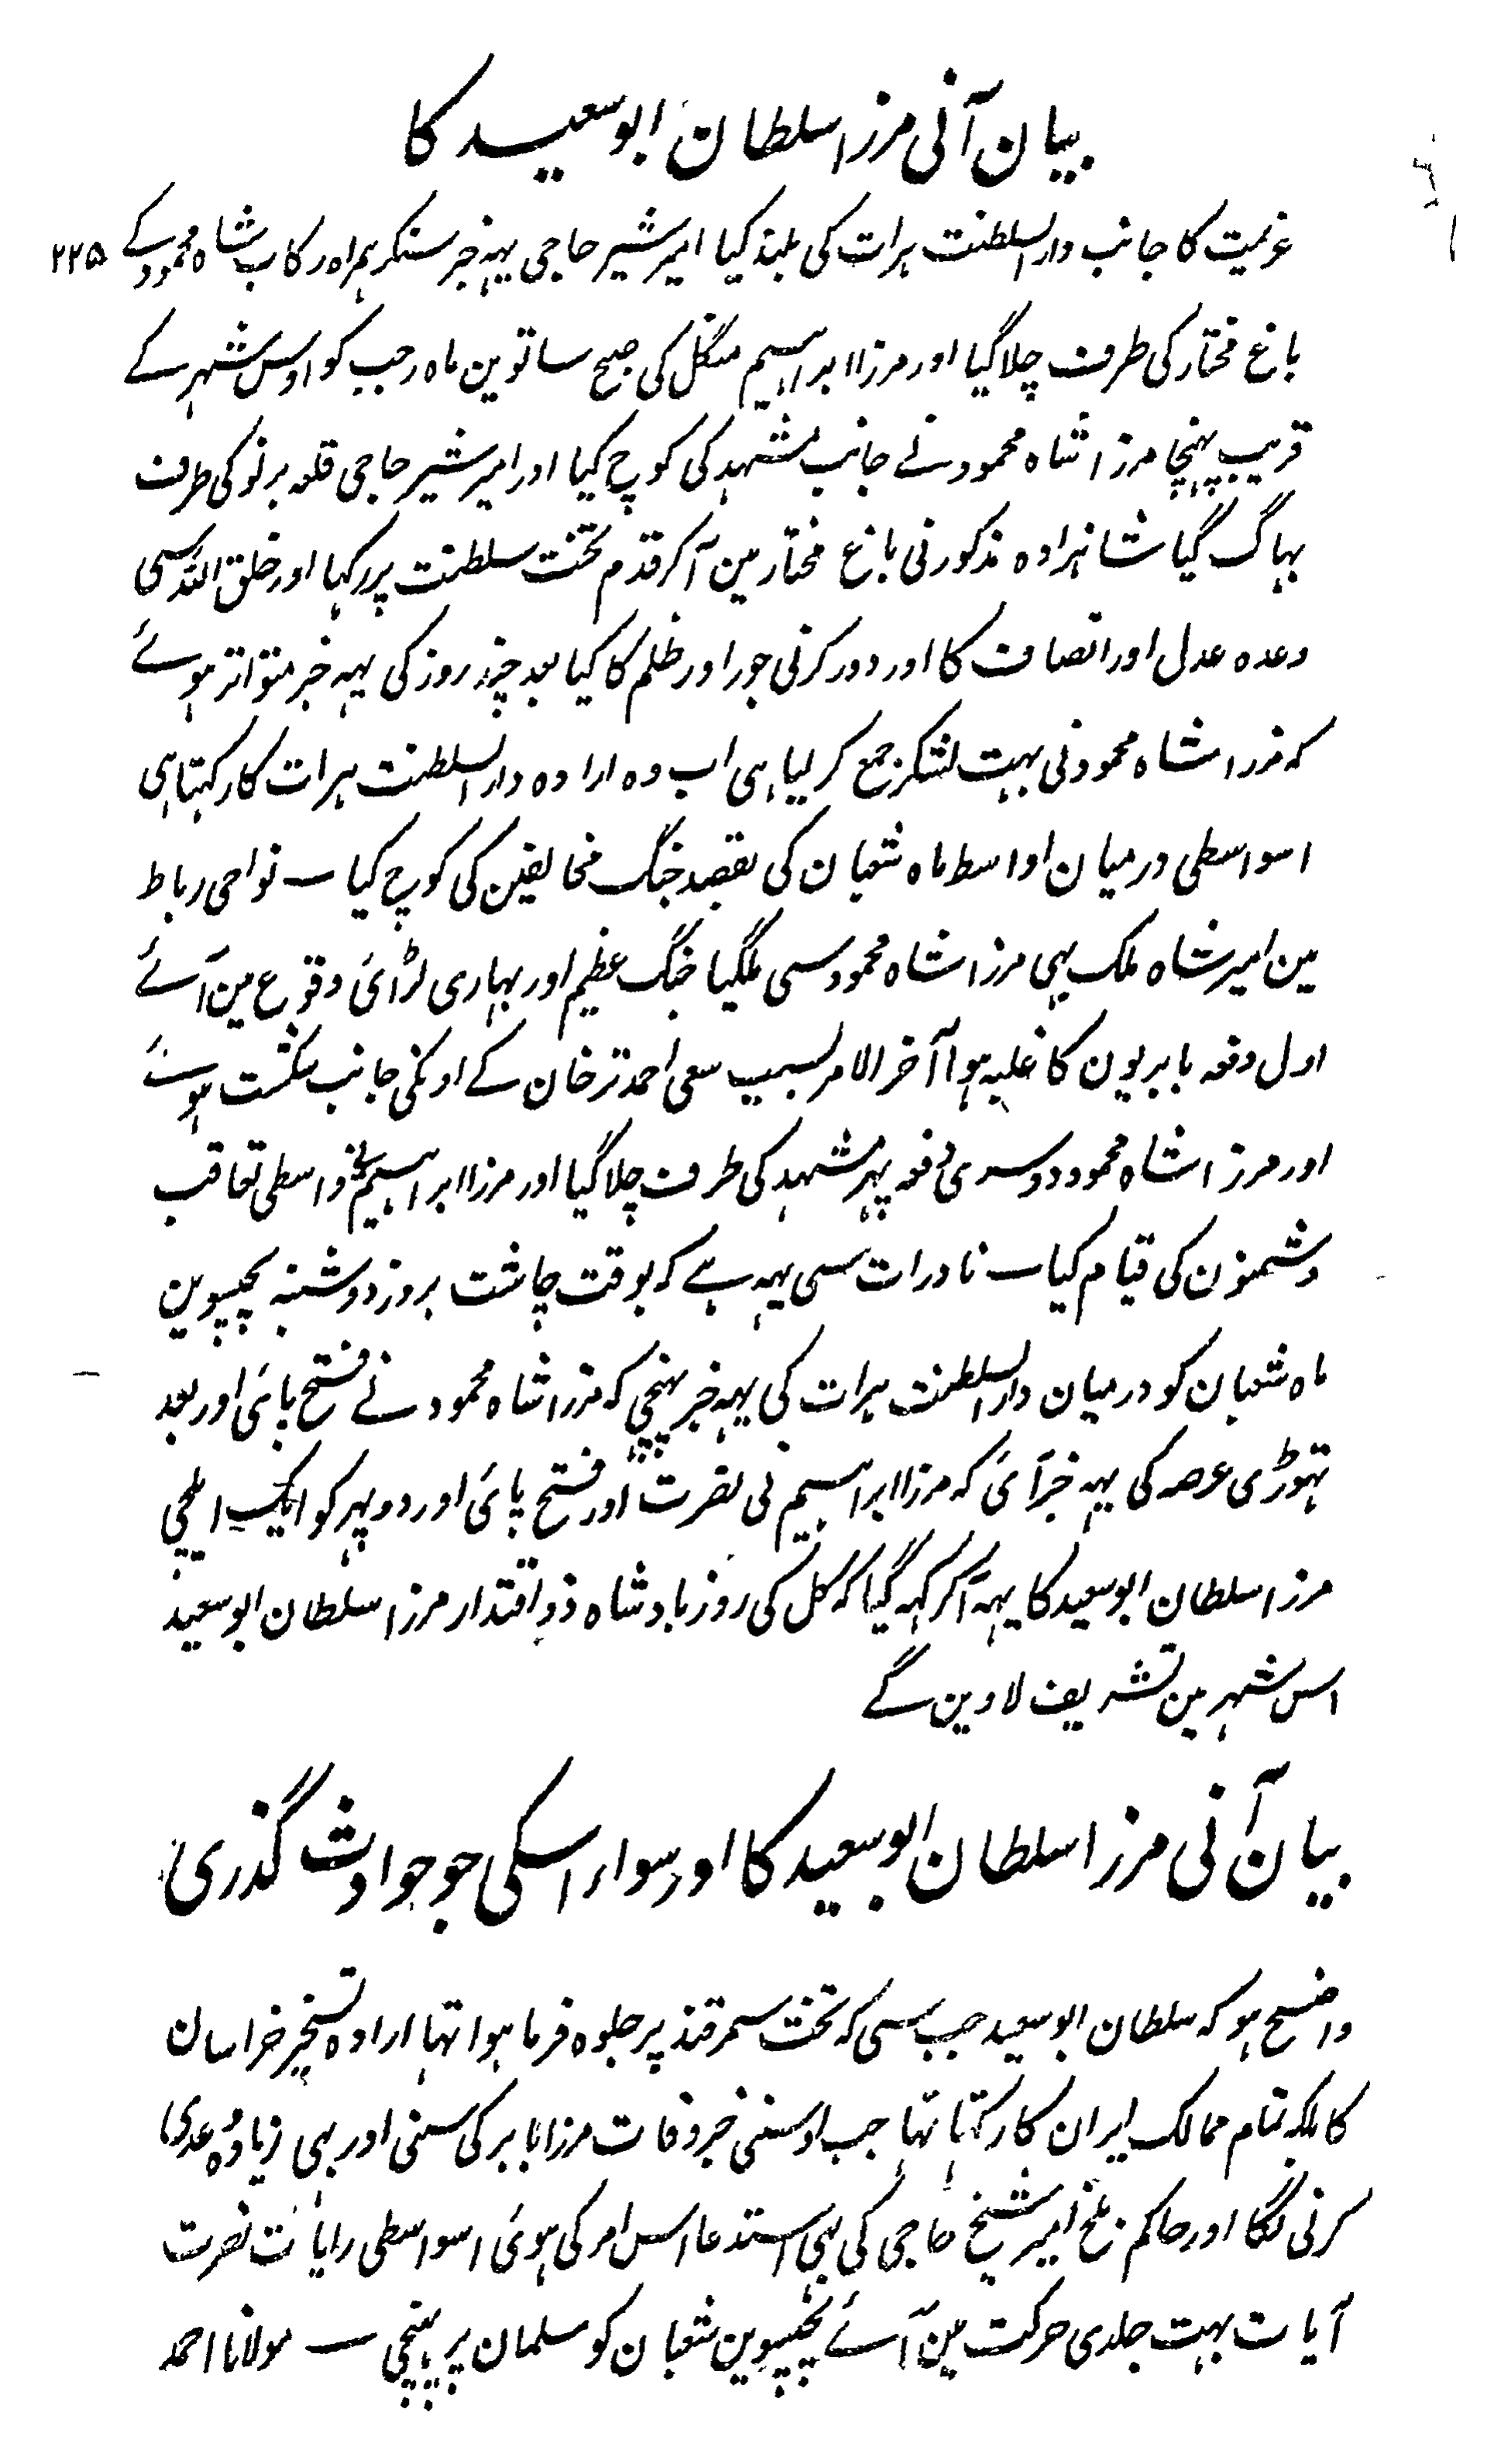 بیان آنی مرزا سلطان ابو سعید کا
عزیمت کا جانب دار السلطنت ہرات کی بلند کیا امیر شیر حاجی یہہ خبر سنکر ہمراہ رکاب شاہ محمود کے ۲۲۵
باغ مختار کی طرف چلا گیا اور مرزا ابراہیم منگل کی صبح ساتوین ماہ رجب کو اوس شہر کے
قریب پہنچا مرزا شاہ محمود نے جانب مشہد کی کوچ کیا اور امیر شیر حاجی قلعہ برنو کی طرف
بہاگ گیا شاہزادہ مذکور نی باغ مختار مین آکر قدم تخت سلطنت پر رکہا اور خلق اللہ سی
وعدہ عدل اور انصاف کا اور دور کرنی جور اور ظلم کا کیا بعد چند روز کی یہہ خبر متواتر ہوئے
کہ مرزا شاہ محمود نی بہت لشکر جمع کر لیا ہی اب وہ ارادہ دار السلطنت ہرات کا رکہتا ہی
اسواسطی درمیان اواسط ماہ شعبان کی بقصد جنگ مخالفین کی کوچ کیا ــ نواحی رباط
مین امیر شاہ ملک بہی مرزا شاہ محمود سی ملگیا جنگ عظیم اور بہاری لڑائی وقوع مین آئے
اول دفعہ بابریون کا غلبہ ہوا آخر الامر بسبب سعی احمد ترخان کے اونکی جانب شکست ہوئے
اور مرزا شاہ محمود دوسری دفعہ پہر مشہد کی طرف چلا گیا اور مرزا ابراہیم نے واسطی تعاقب
دشمنون کی قیام کیا ــ نادرات سی یہہ ہے کہ بوقت چاشت بروز دوشنبہ پچیسوین
ماہ شعبان کو درمیان دار السلطنت ہرات کی یہہ خبر پہنچی کہ مرزا شاہ محمود نے فتح پائی اور بعد
تہوڑی عرصہ کی یہہ خبر آئی کہ مرزا ابراہیم نی نصرت اور فتح پائی اور دوپہر کو ایک ایلچی
مرزا سلطان ابو سعید کا یہہ آکر کہہ گیا کہ کل کی روز بادشاہ ذو اقتدار مرزا سلطان ابو سعید
اس شہر مین تشریف لاوین گے
بیان آنی مرزا سلطان ابو سعید کا اور سواء اسکی جو حوادث گذری
واضح ہو کہ سلطان ابو سعید جب سی کہ تخت سمرقند پر جلوہ فرما ہوا تہا ارادہ تسخیر خراسان
کا بلکہ تمام ممالک ایران کا رکہتا تہا جب اوسنی خبر وفات مرزا بابر کی سنی اور بہی زیادہ جلدی
کرنی لگا اور حاکم بلخ امیر شیخ حاجی کی بہی استدعا اس امر کی ہوئی اسواسطی رایات نصرت
آیات بہت جلدی حرکت مین آئے پچیسوین شعبان کو سلمان پر پہنچی ــ مولانا احمد